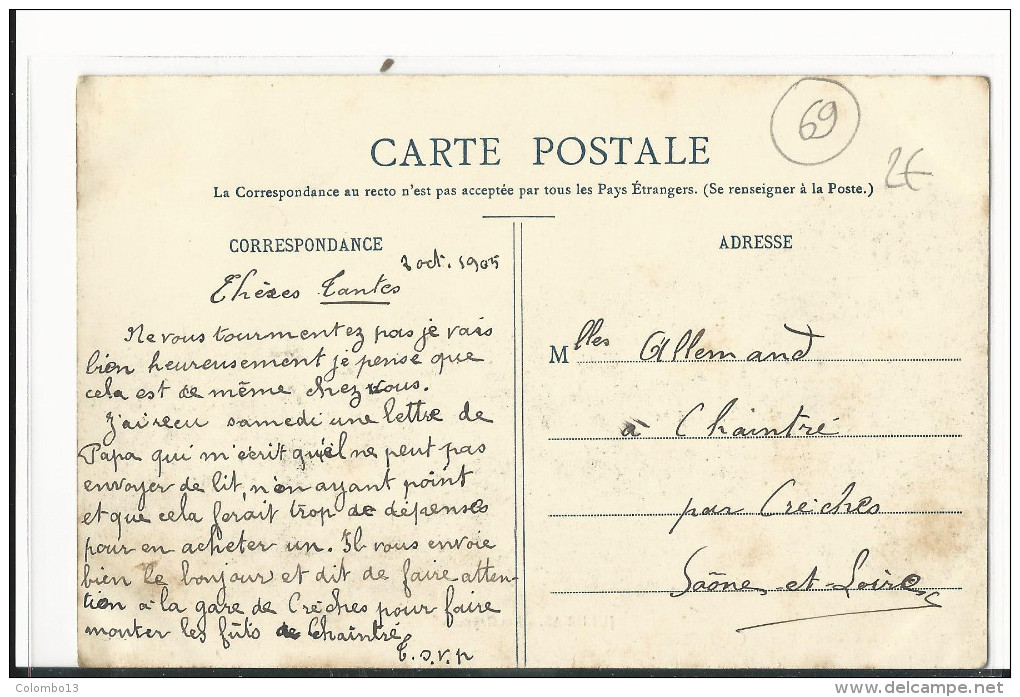 69
CARTE POSTALE
2€
La Correspondance au recto n'est pas acceptée par tous les Pays Étrangers. (Se renseigner à la Poste.)
CORRESPONDANCE
3 oct. 1905
Chères Tantes
Ne vous tourmentez pas je vais
bien heureusement je pense que
cela est de même chez vous.
J'ai reçu samedi une lettre de
Papa qui m'écrit qu'il ne peut pas
envoyer de lit, n'en ayant point
et que cela ferait trop de dépenses
pour en acheter un. Il vous envoie
bien le bonjour et dit de faire atten-
tion à la gare de Crèches pour faire
monter les fûts de Chaintré
T.S.V.P
ADRESSE
Mlles Allemand
à Chaintré
par Crèches
Saône-et-Loire
Colombo13
www.delcampe.net